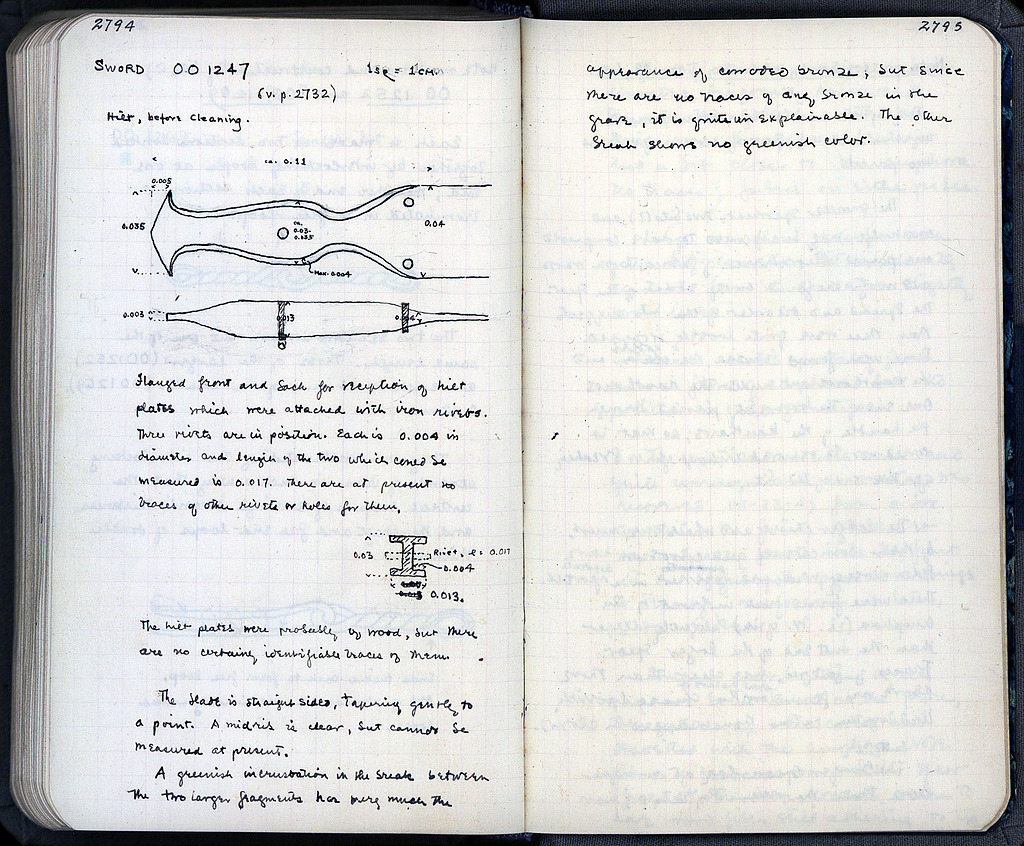 2794
SWORD OO 1247 1sq = 1cm.
(v. p. 2732)
Hilt, before cleaning.
ca. 0.11
0.005
0.035
0.04
ca.
0.03-
0.035
Max. 0.004
0.003
0.013
Flanged front and back for reception of hilt
plates which were attached with iron rivets.
Three rivets are in position. Each is 0.004 in
diameter and length of the two which could be
measured is 0.017. There are at present no
traces of other rivets or holes for them.
0.03
Rivet, l = 0.017
0.004
0.013.
The hilt plates were probably of wood, but there
are no certainly identifiable traces of them.
The blade is straight sided, tapering gently to
a point. A midrib is clear, but cannot be
measured at present.
A greenish incrustation in the break between
the two larger fragments has very much the
2795
appearance of corroded bronze, but since
there are no traces of any bronze in the
grave, it is quite unexplainable. The other
break shows no greenish color.